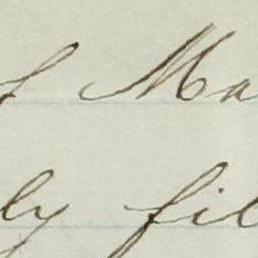 f Ma
ly fil